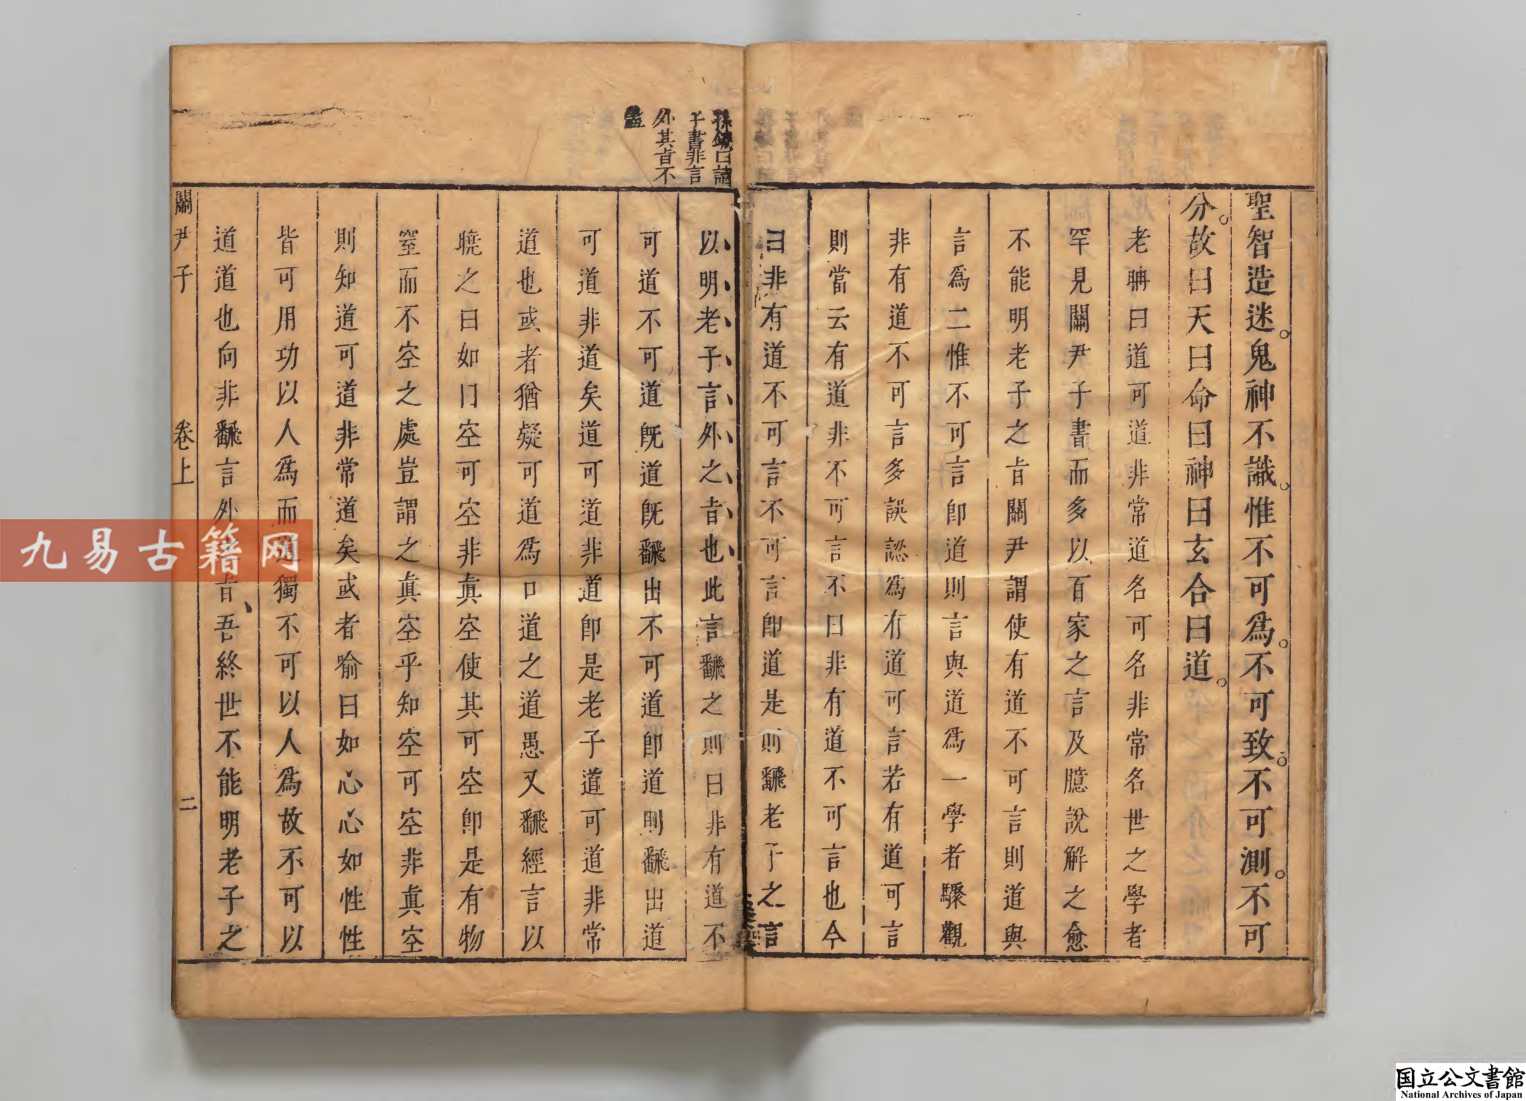 聖智造迷。鬼神不識。惟不可爲。不可致。不可測。不可
分。故曰天曰命曰神曰玄合曰道。
老聃曰道可道非常道名可名非常名世之學者
罕見關尹子書而多以百家之言及臆說解之愈
不能明老子之旨關尹謂使有道不可言則道與
言爲二惟不可言卽道則言與道爲一學者驟觀
非有道不可言多誤認爲有道可言若有道可言
則當云有道非不可言不曰非有道不可言也今
曰非有道不可言不可言卽道是則翻老子之言
孫鑛曰諸
子書非言
外其旨不
盡
以明老子言外之旨也此言翻之則曰非有道不
可道不可道旣道旣翻出不可道卽道則翻出道
可道非道矣道可道非道卽是老子道可道非常
道也或者猶疑可道爲口道之道愚又翻經言以
曉之曰如曰空可空非眞空使其可空卽是有物
窒而不空之處豈謂之眞空乎知空可空非眞空
則知道可道非常道矣或者喻曰如心心如性性
皆可用功以人爲而獨不可以人爲故不可以
道道也向非翻言外旨吾終世不能明老子之
關尹子
卷上
二
九易古籍网
国立公文書館
National Archives of Japan